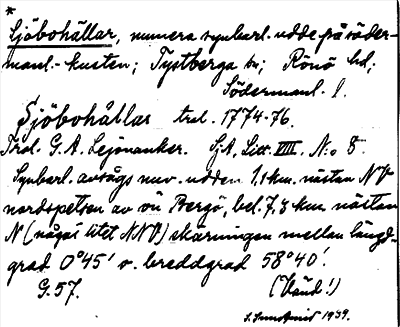 *
Sjöbohällar, numera synbarl. udde på söder-
manl.-kusten; Tystberga sn; Rönö hd;
Södermanl. l.
Sjöbohällar trol. 1774-76.
Trol. G. A. Lejonanker. S.A, Litt. VIII. No 8.
Synbarl. avsågs nuv. udden 1,1 km. nästan NV
nordspetsen av ön Bergö, bel. 7,3 km. nästan
N (något litet NNV) skärningen mellan längd-
grad 0°45' o. breddgrad 58°40'.
G.57. (Vänd!)
1939.